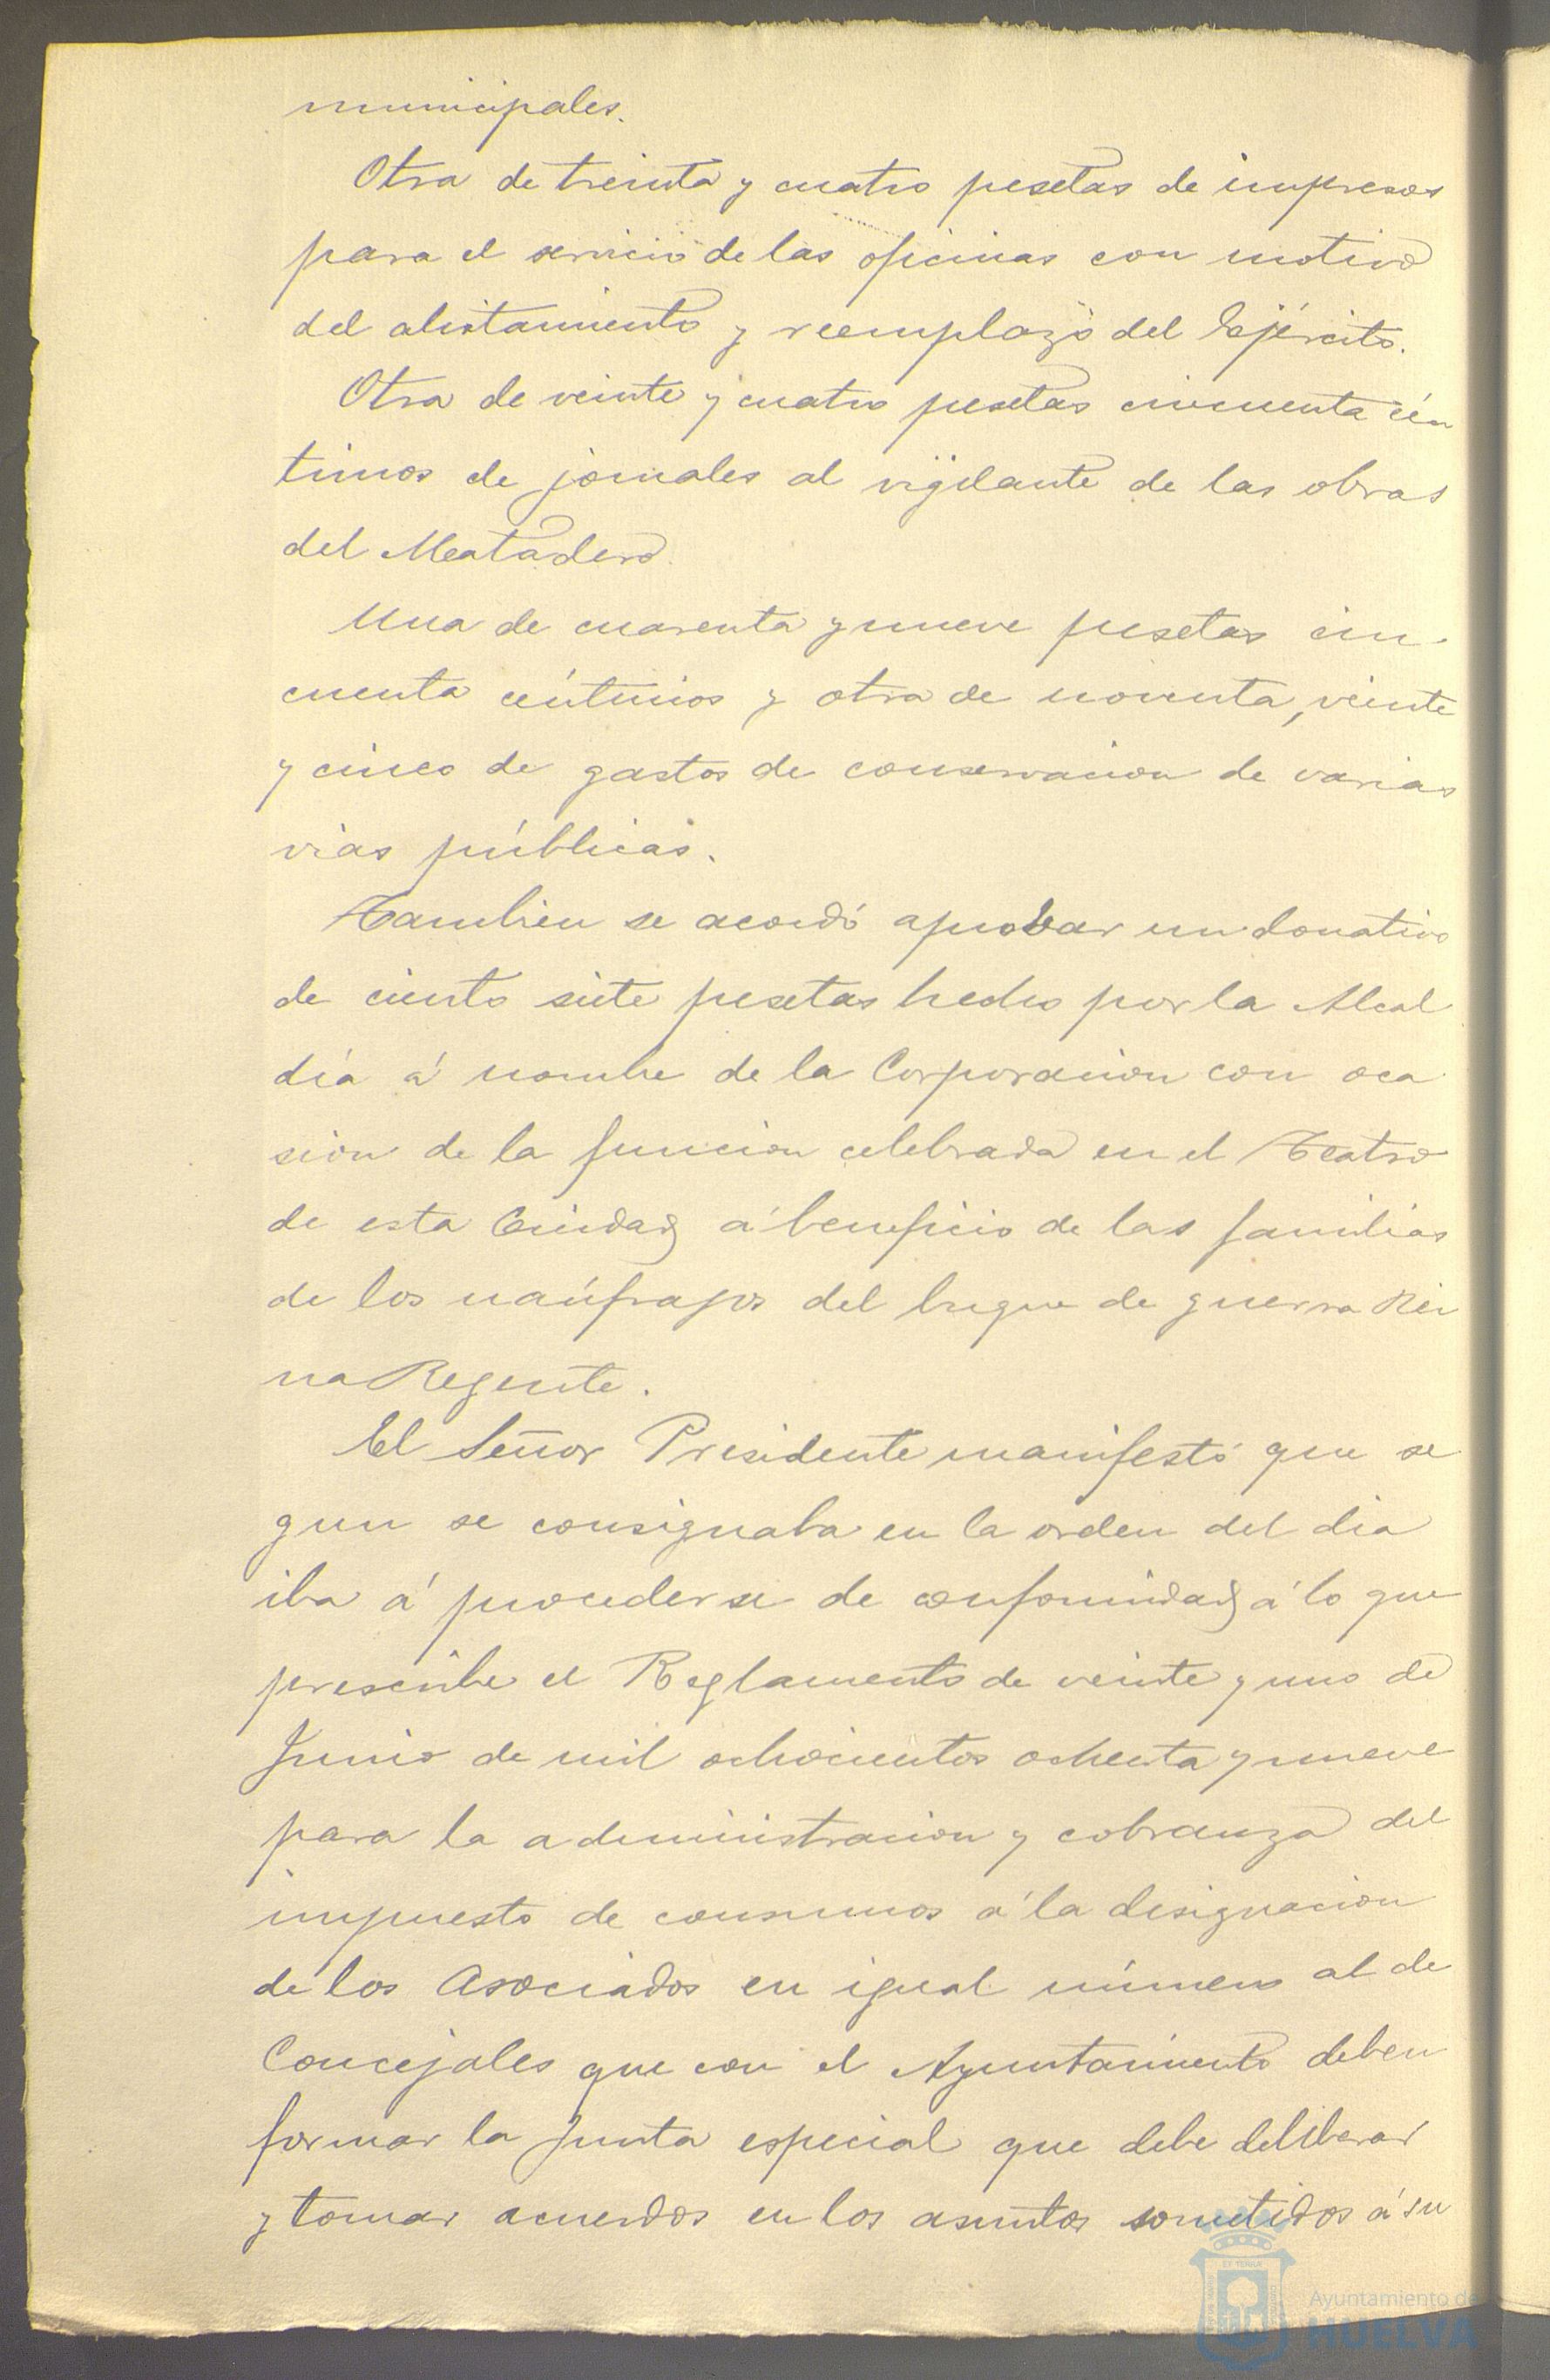 municipales.
Otra de treinta y cuatro pesetas de impresos
para el servicio de las oficinas con motivo
del alistamiento y reemplazo del Ejército.
Otra de veinte y cuatro pesetas cincuenta cén
timos de jornales al vijilante de las obras
del Matadero.
Una de cuarenta y nueve pesetas cin-
cuenta céntimos y otra de noventa, veinte
y cinco de gastos de conservacion de varias
vias públicas.
Tambien se acordó aprobar un donativo
de ciento siete pesetas hecho por la Alcal
día á nombre de la Corporacion con oca
sion de la funcion celebrada en el Teatro
de esta Ciudad á beneficio de las familias
de los naúfragos del buque de guerra Rei
na Regente.
El Señor Presidente manifestó que se
gun se consignaba en la orden del dia
iba á procederse de conformidad á lo que
prescribe el Reglamento de veinte y uno de
Junio de mil ochocientos ochenta y nueve
para la administracion y cobranza del
impuesto de consumos á la designacion
de los Asociados en igual número al de
Concejales que con el Ayuntamiento deben
formar la Junta especial que debe deliberar
y tomar acuerdos en los asuntos sometidos á su
Ayuntamiento de
HUELVA